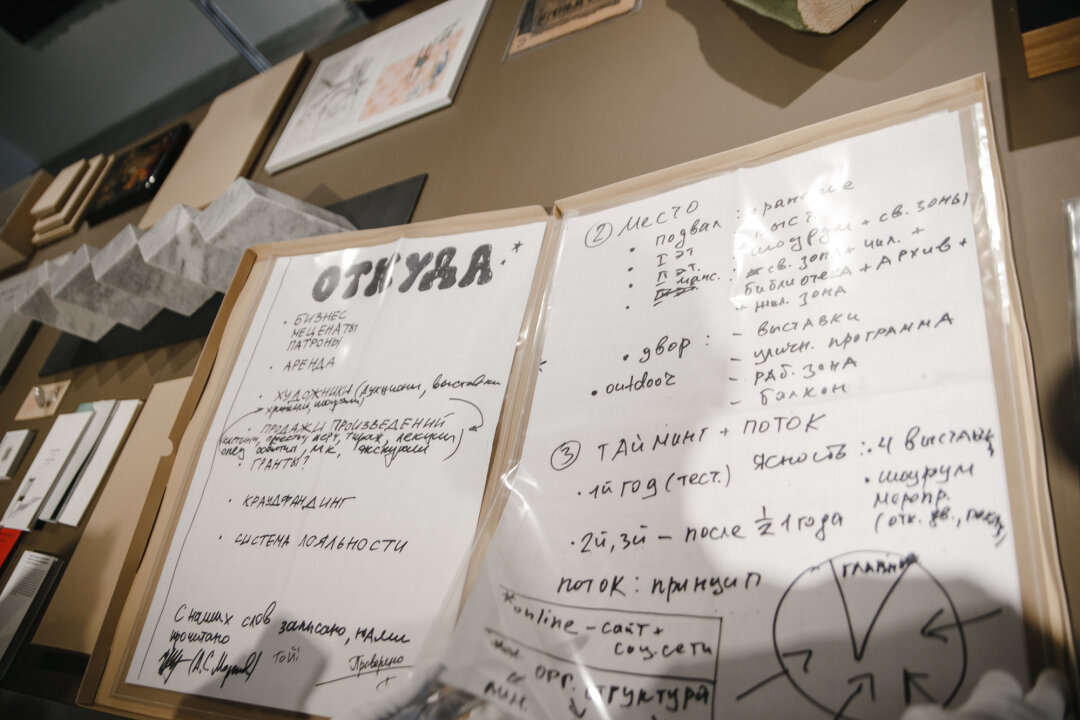 ОТКУДА
• БИЗНЕС
МЕЦЕНАТЫ
ПАТРОНЫ
• АРЕНДА
• ХУДОЖНИКИ (аукционы, выставки
хранение, шоурум)
• ПРОДАЖИ ПРОИЗВЕДЕНИЙ
мерч, тираж, лекции)
события, МК, экскурсии
• ГРАНТЫ?
• КРАУДФАНДИНГ
• СИСТЕМА ЛОЯЛЬНОСТИ
С наших слов записано, нами
прочитано
Проверено
② МЕСТО
• подвал : хранение
• I эт
• II эт. : шоурум + св. зоны
манс. : св. зона + жил. +
библиотека + АРХИВ +
+ жил. зона
• двор : – выставки
– уличн. программа
• outdoor – раб. зона
– балкон
③ ТАЙМИНГ + ПОТОК
• 1й год (тест.) Ясность : • 4 выставки,
• шоурум
меропр.
• 2й, 3й – после ½ 1 года
поток: принцип
главный
online – сайт +
соц. сети
орг. структура